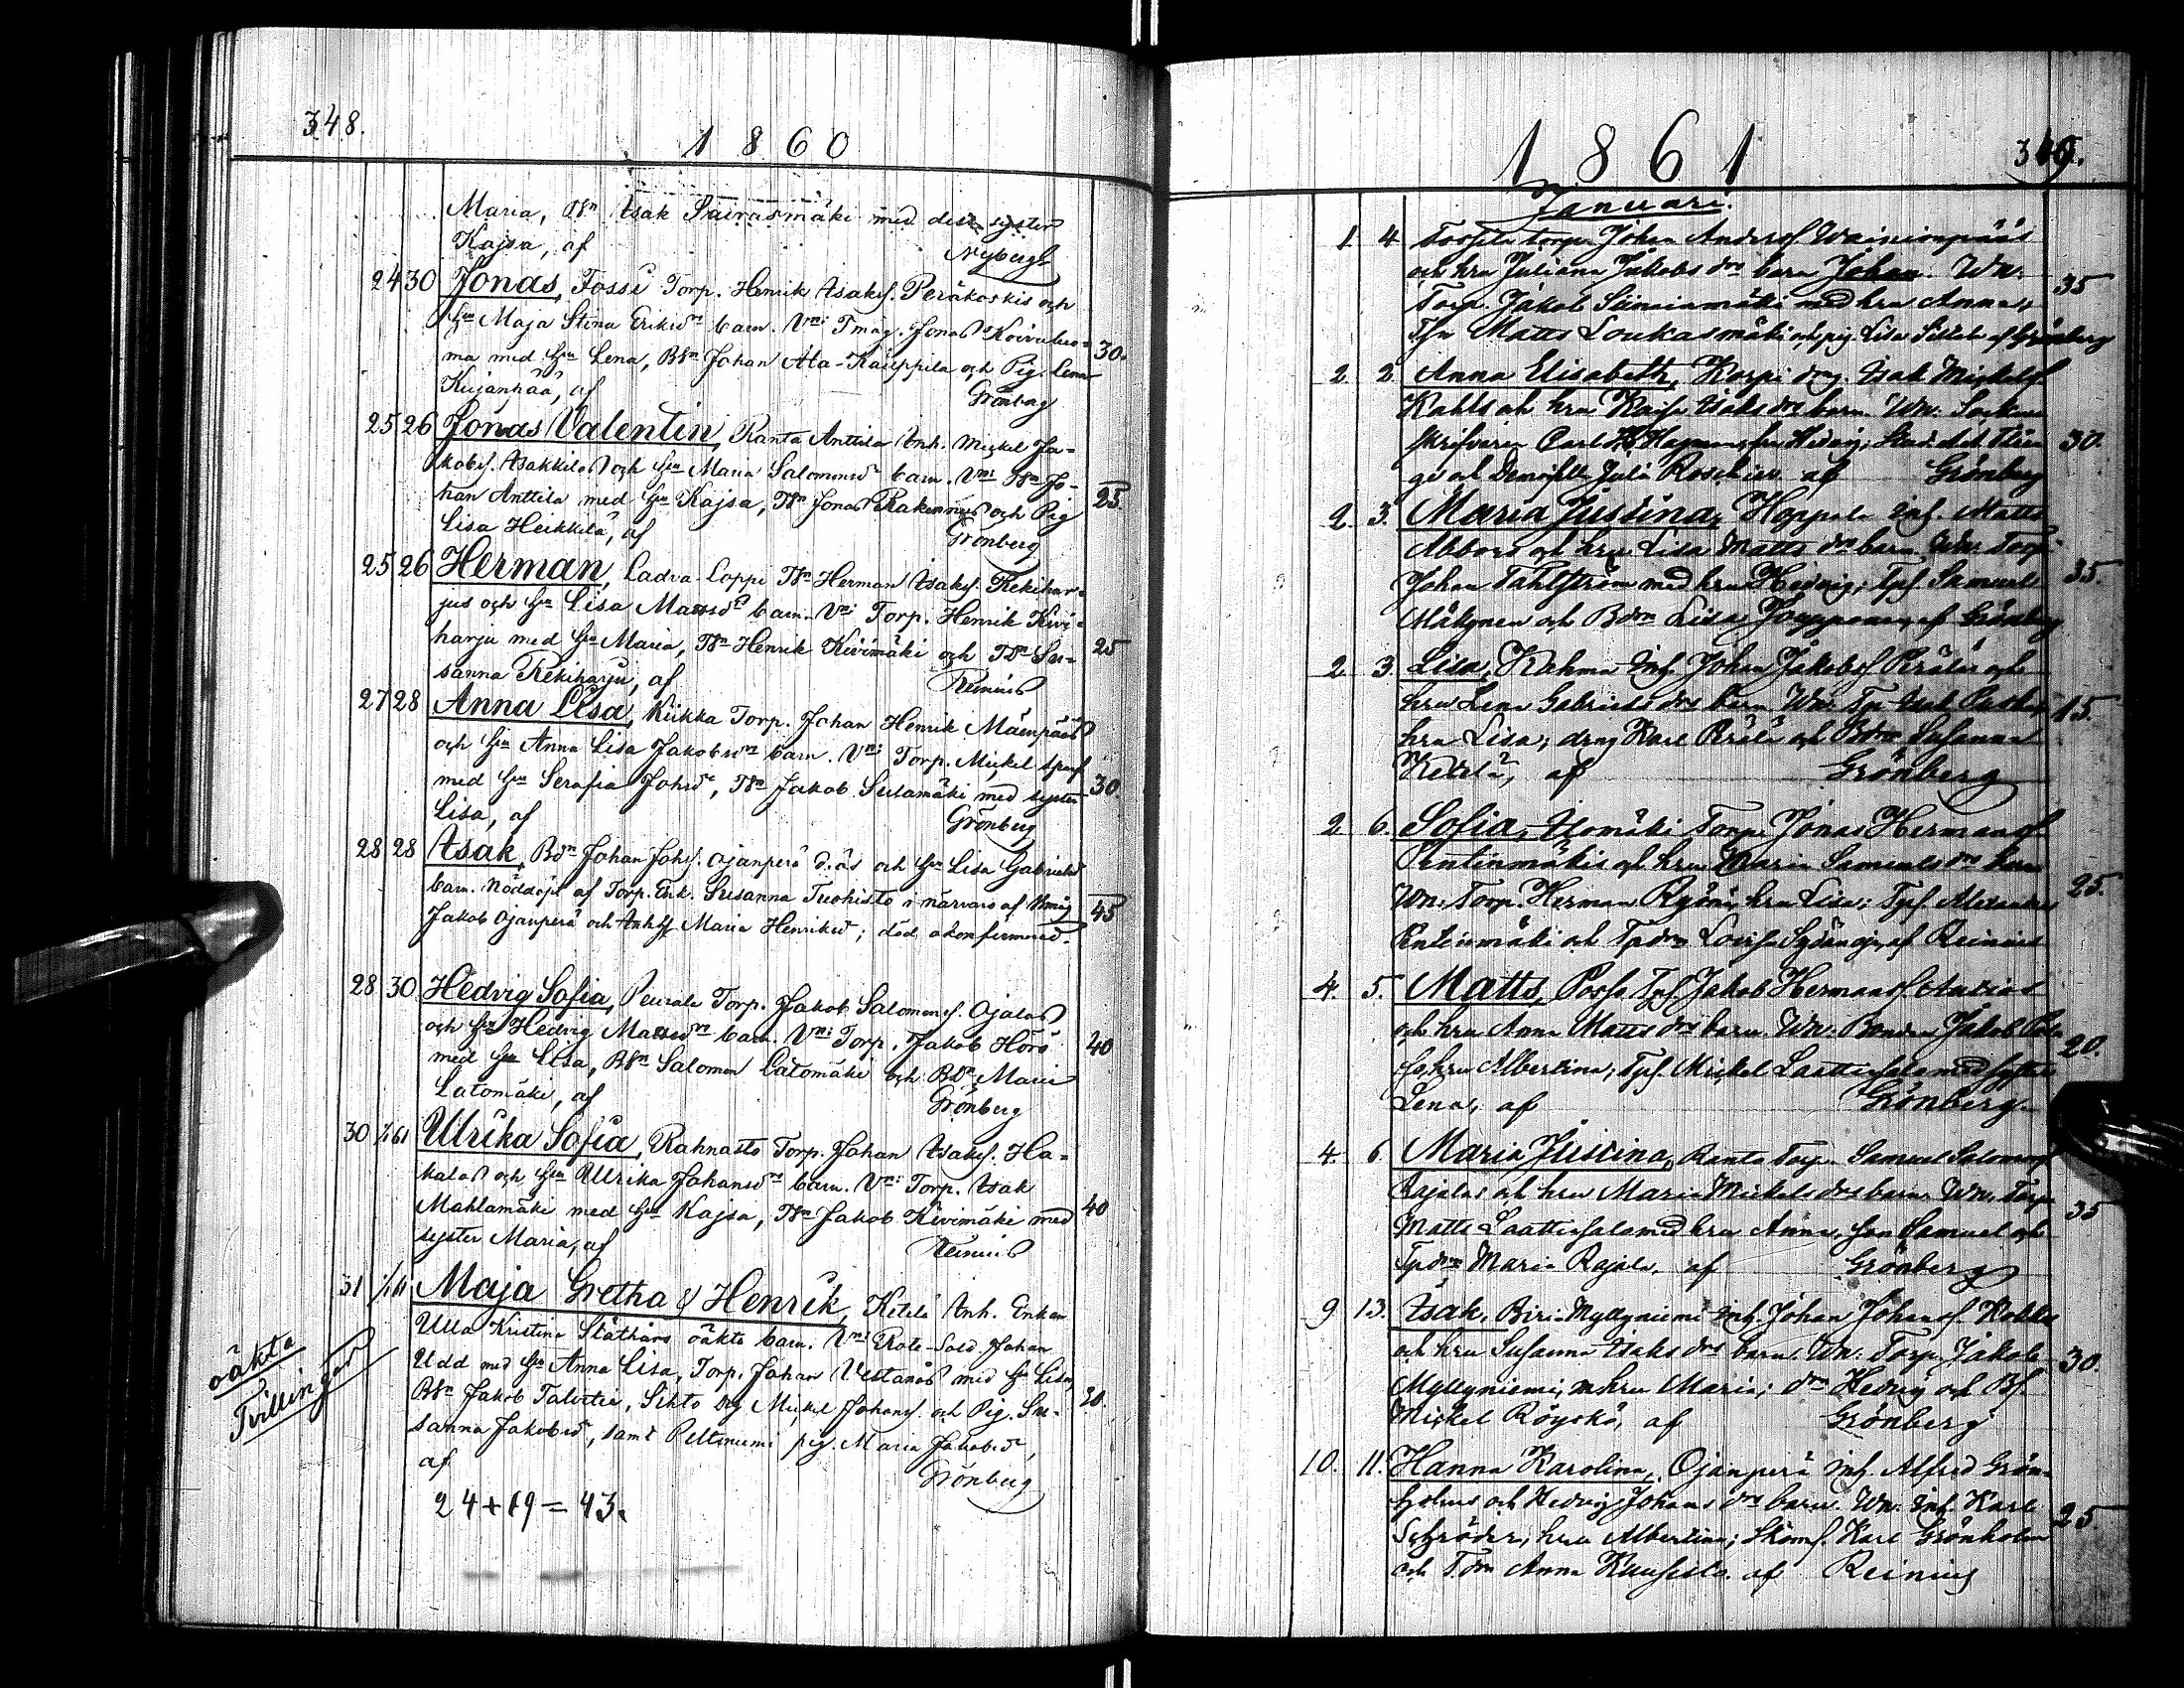 348.
1860
Maria, Bsn Isak Sairasmäki med dess syster
Kajsa, af Nyberg
24 30 Jonas, Fossi Torp. Henrik Isaksf. Peräkoskis och
hu Maja Stina Eriksdr barn. Vn: Tmåg. Jonas Koivuluo-
ma med hu Lena, Bsn Johan Ala-Käuppila och Pig. Lena 30.
Kujanpää, af Grönberg
25 26 Jonas Valentin, Ranta Anttila Inh. Mickel Ja-
kobsf. Isakkilas och hu Maria Salomonsdr barn. Vn: Bsn Jo-
han Anttila med hu Kajsa, Tsn Jonas Rakennus och Pig 25.
Lisa Heikkilä, af Grönberg
25 26 Herman, Ladva-Loppi Tsn Herman Isaksf. Rekihar-
jus och hu Lisa Mattsdr barn. Vn: Torp. Henrik Kivi-
harju med hu Maria, Tsn Henrik Kivimäki och Tdr Su- 25
sanna Rekiharju, af Reinius
27 28 Anna Lisa, Kiikka Torp. Johan Henrik Mäenpääs
och hu Anna Lisa Jakobsdr barn. Vn: Torp. Mickel
med hu Serafia Johsdr, Tsn Jakob Sulamäki med syster 30.
Lisa, af Grönberg
28 28 Isak, Bdn Johan Johsf. Ojanperä d.äs och hu Lisa Gabrielsd
barn. Nöddöpt af Torp. Enk. Susanna Tuohisto i närvaro af Hmåg
Jakob Ojanperä och Inhhu Maria Henriksd; död okonfirmerad. 45
28 30 Hedvig Sofia, Peurala Torp. Jakob Salomonsf. Ojalas
och hu Hedvig Mattsdr barn. Vn: Torp. Jakob Horo 40
med hu Lisa, Bsn Salomon Latomäki och Bdr Maria
Latomäki, af Grönberg
30 1/1 61 Ulrika Sofia, Rahnasto Torp. Johan Isaksf. Ha-
kalas och hu Ulrika Johansdr barn. Vn: Torp. Isak
Mahlamäki med hu Kajsa, Tsn Jakob Kivimäki med 40
syster Maria, af Reinius
31 1/1 61 Maja Gretha & Henrik, Ketelä Inh. Enkan
Ulla Kristina Ståthårs oäkta barn. Vn: Rote-Sold. Johan
Udd med hu Anna Lisa, Torp. Johan Vestanås med hu Lisa,
Bsn Jakob Talvitie, Sihto drg Mickel Johansf. och Pig. Su- 30.
sanna Jakobsd, samt Peltoniemi pig. Maria Jakobsd,
af Grönberg
oäkta
Tvillingar
24+19=43.
1861 349.
Januari.
1. 4. Torp. Johan Andersf. Wainionpääs
och hru Juliana Jakobs dr barn Johan. Wn: 35
Torp. Jakob med hru Anna,
Matts Loukasmäki och pig. Lisa af Grönberg
2. 2. Anna Elisabeth, Karpi drg. Isak Mickelsf.
och hru Kajsa Isaks dr barn. Wn: Socken
skrifvaren Carl Hagman, fru Hedvig; 30.
och Demoiselle Julia Roschier af Grönberg
2. 3. Maria Justina, Hoppala Inh. Matts
Abbors och hru Lisa Matts dr barn. Wn: Torp.
Johan Tahlström med hru Hedvig; Tps. Samuel 35.
Mäkynen och Bdr Lisa af Grönberg
2. 3. Lisa, Rahma Inh. Johan Jakobsf. Perälä och
hru Lena Gabriels dr barn. Wn: Tp Isak 15.
hru Lisa; dräng Karl Perälä och Bdr Susanna
Ketelä, af Grönberg
2. 6. Sofia, Isomäki Torp. Jonas Hermansf.
Pentinmäkis och hru Maria Samuels dr barn
Wn: Torp. Herman Ryömä, hru Lisa; Tps. Alexander 25.
Pentinmäki och Tpdr Lovisa Sydänoja, af Reinius
4. 5. Matts, Posso Tps. Jakob Hermansf.
och hru Anna Matts dr barn. Wn: Bonden Jakob 20.
hru Albertina; Tps. Mickel Laattinsalo med syster
Lena, af Grönberg
4. 6. Maria Justina, Ranta Torp. Samuel Salomonsf.
Rajalas och hru Maria Mickels dr barn. Wn: Torp. 35
Matts Laattinsalo med hru Anna, son Samuel och
Tpdr Maria Rajala, af Grönberg
9. 13. Isak, Biri-Myllyniemi Inh. Johan Johansf.
och hru Susanna Isaks dr barn. Wn: Torp. Jakob 30.
Myllyniemi, m hru Maria; dr Hedvig och Bs.
Mickel Röyskö, af Grönberg
10. 11. Hanna Karolina, Ojanperä Inh. Alfred Grön-
holms och Hedvig Johans dr barn. Wn: Inh. Karl 25.
Schröder, hru Albertina; Skom. Karl Grönholm
och Tdr Anna Kuusisto. af Reinius